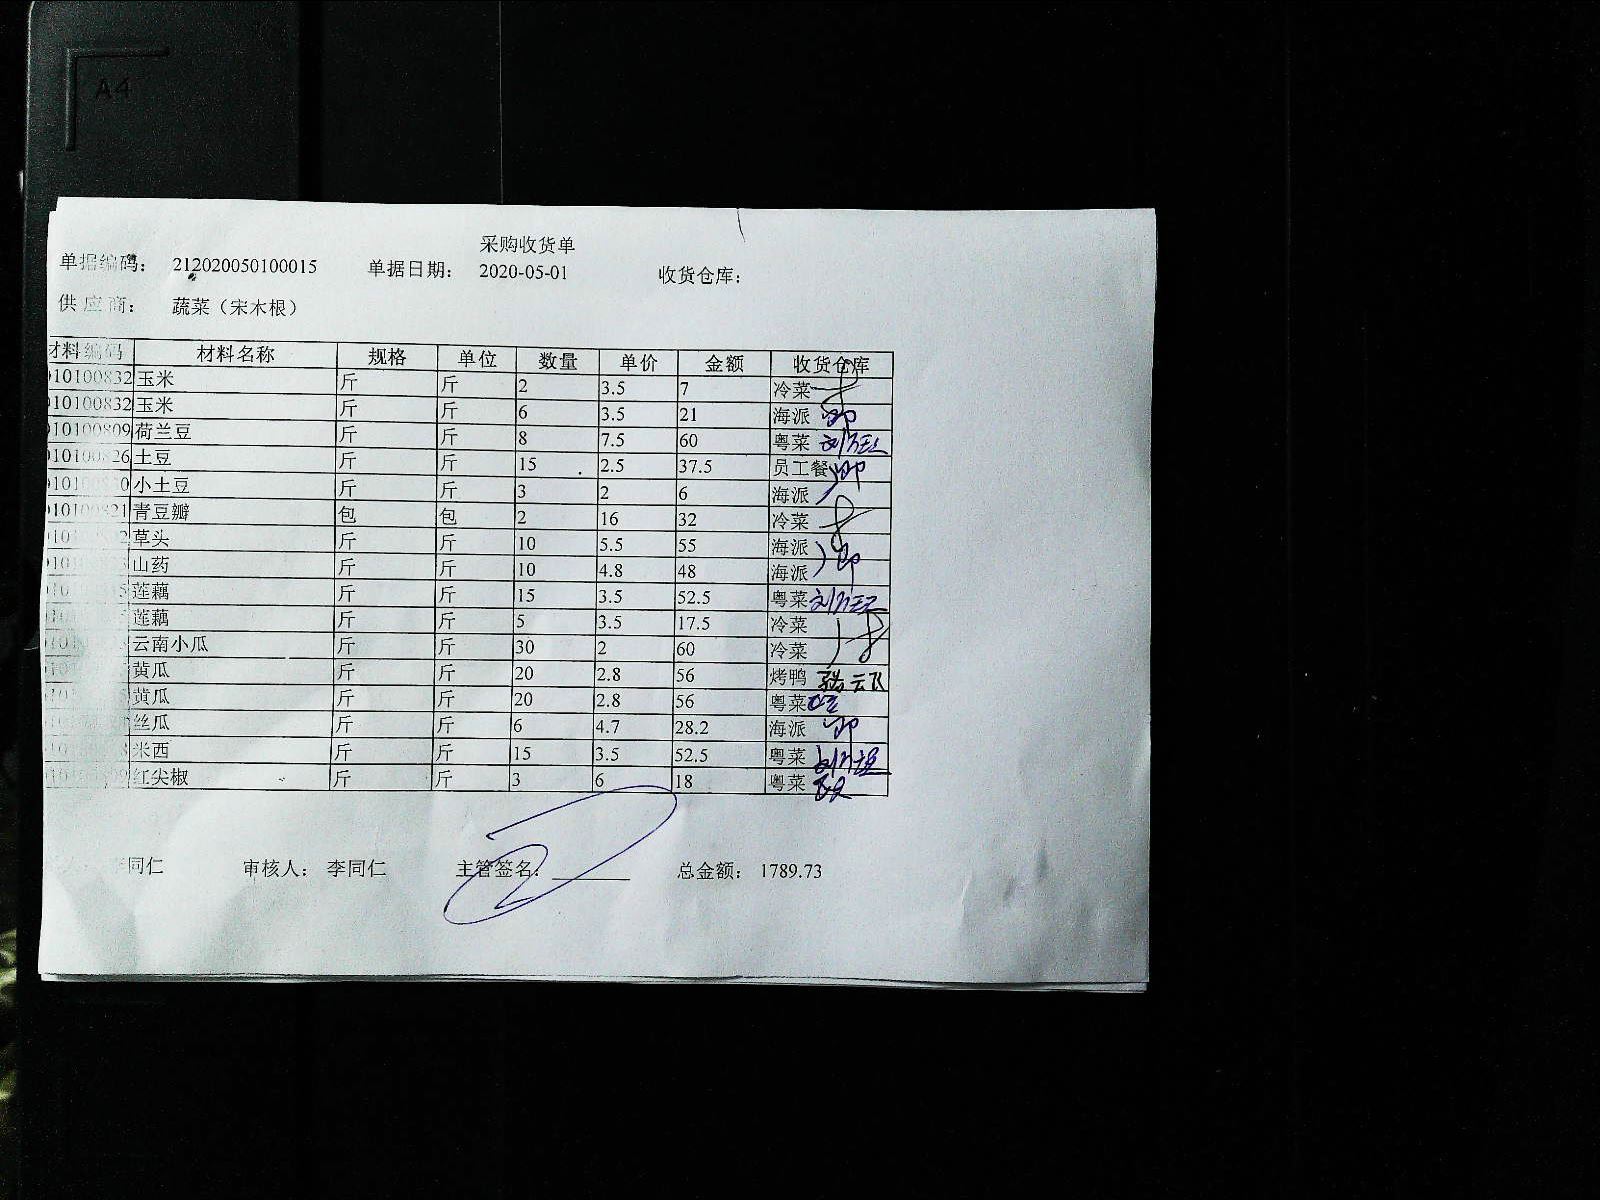 A4
采购收货单
单据编码： 212020050100015 单据日期： 2020-05-01 收货仓库：
供应商： 蔬菜（宋木根）
材料编码 材料名称 规格 单位 数量 单价 金额 收货仓库
010100832 玉米 斤 斤 2 3.5 7 冷菜
010100832 玉米 斤 斤 6 3.5 21 海派
010100809 荷兰豆 斤 斤 8 7.5 60 粤菜
土豆 斤 斤 15 2.5 37.5 员工餐
小土豆 斤 斤 3 2 6 海派
青豆瓣 包 包 2 16 32 冷菜
草头 斤 斤 10 5.5 55 海派
山药 斤 斤 10 4.8 48 海派
莲藕 斤 斤 15 3.5 52.5 粤菜
莲藕 斤 斤 5 3.5 17.5 冷菜
云南小瓜 斤 斤 30 2 60 冷菜
黄瓜 斤 斤 20 2.8 56 烤鸭
黄瓜 斤 斤 20 2.8 56 粤菜
丝瓜 斤 斤 6 4.7 28.2 海派
米西 斤 斤 15 3.5 52.5 粤菜
红尖椒 斤 斤 3 6 18 粤菜
李同仁 审核人： 李同仁 主管签名： 总金额： 1789.73